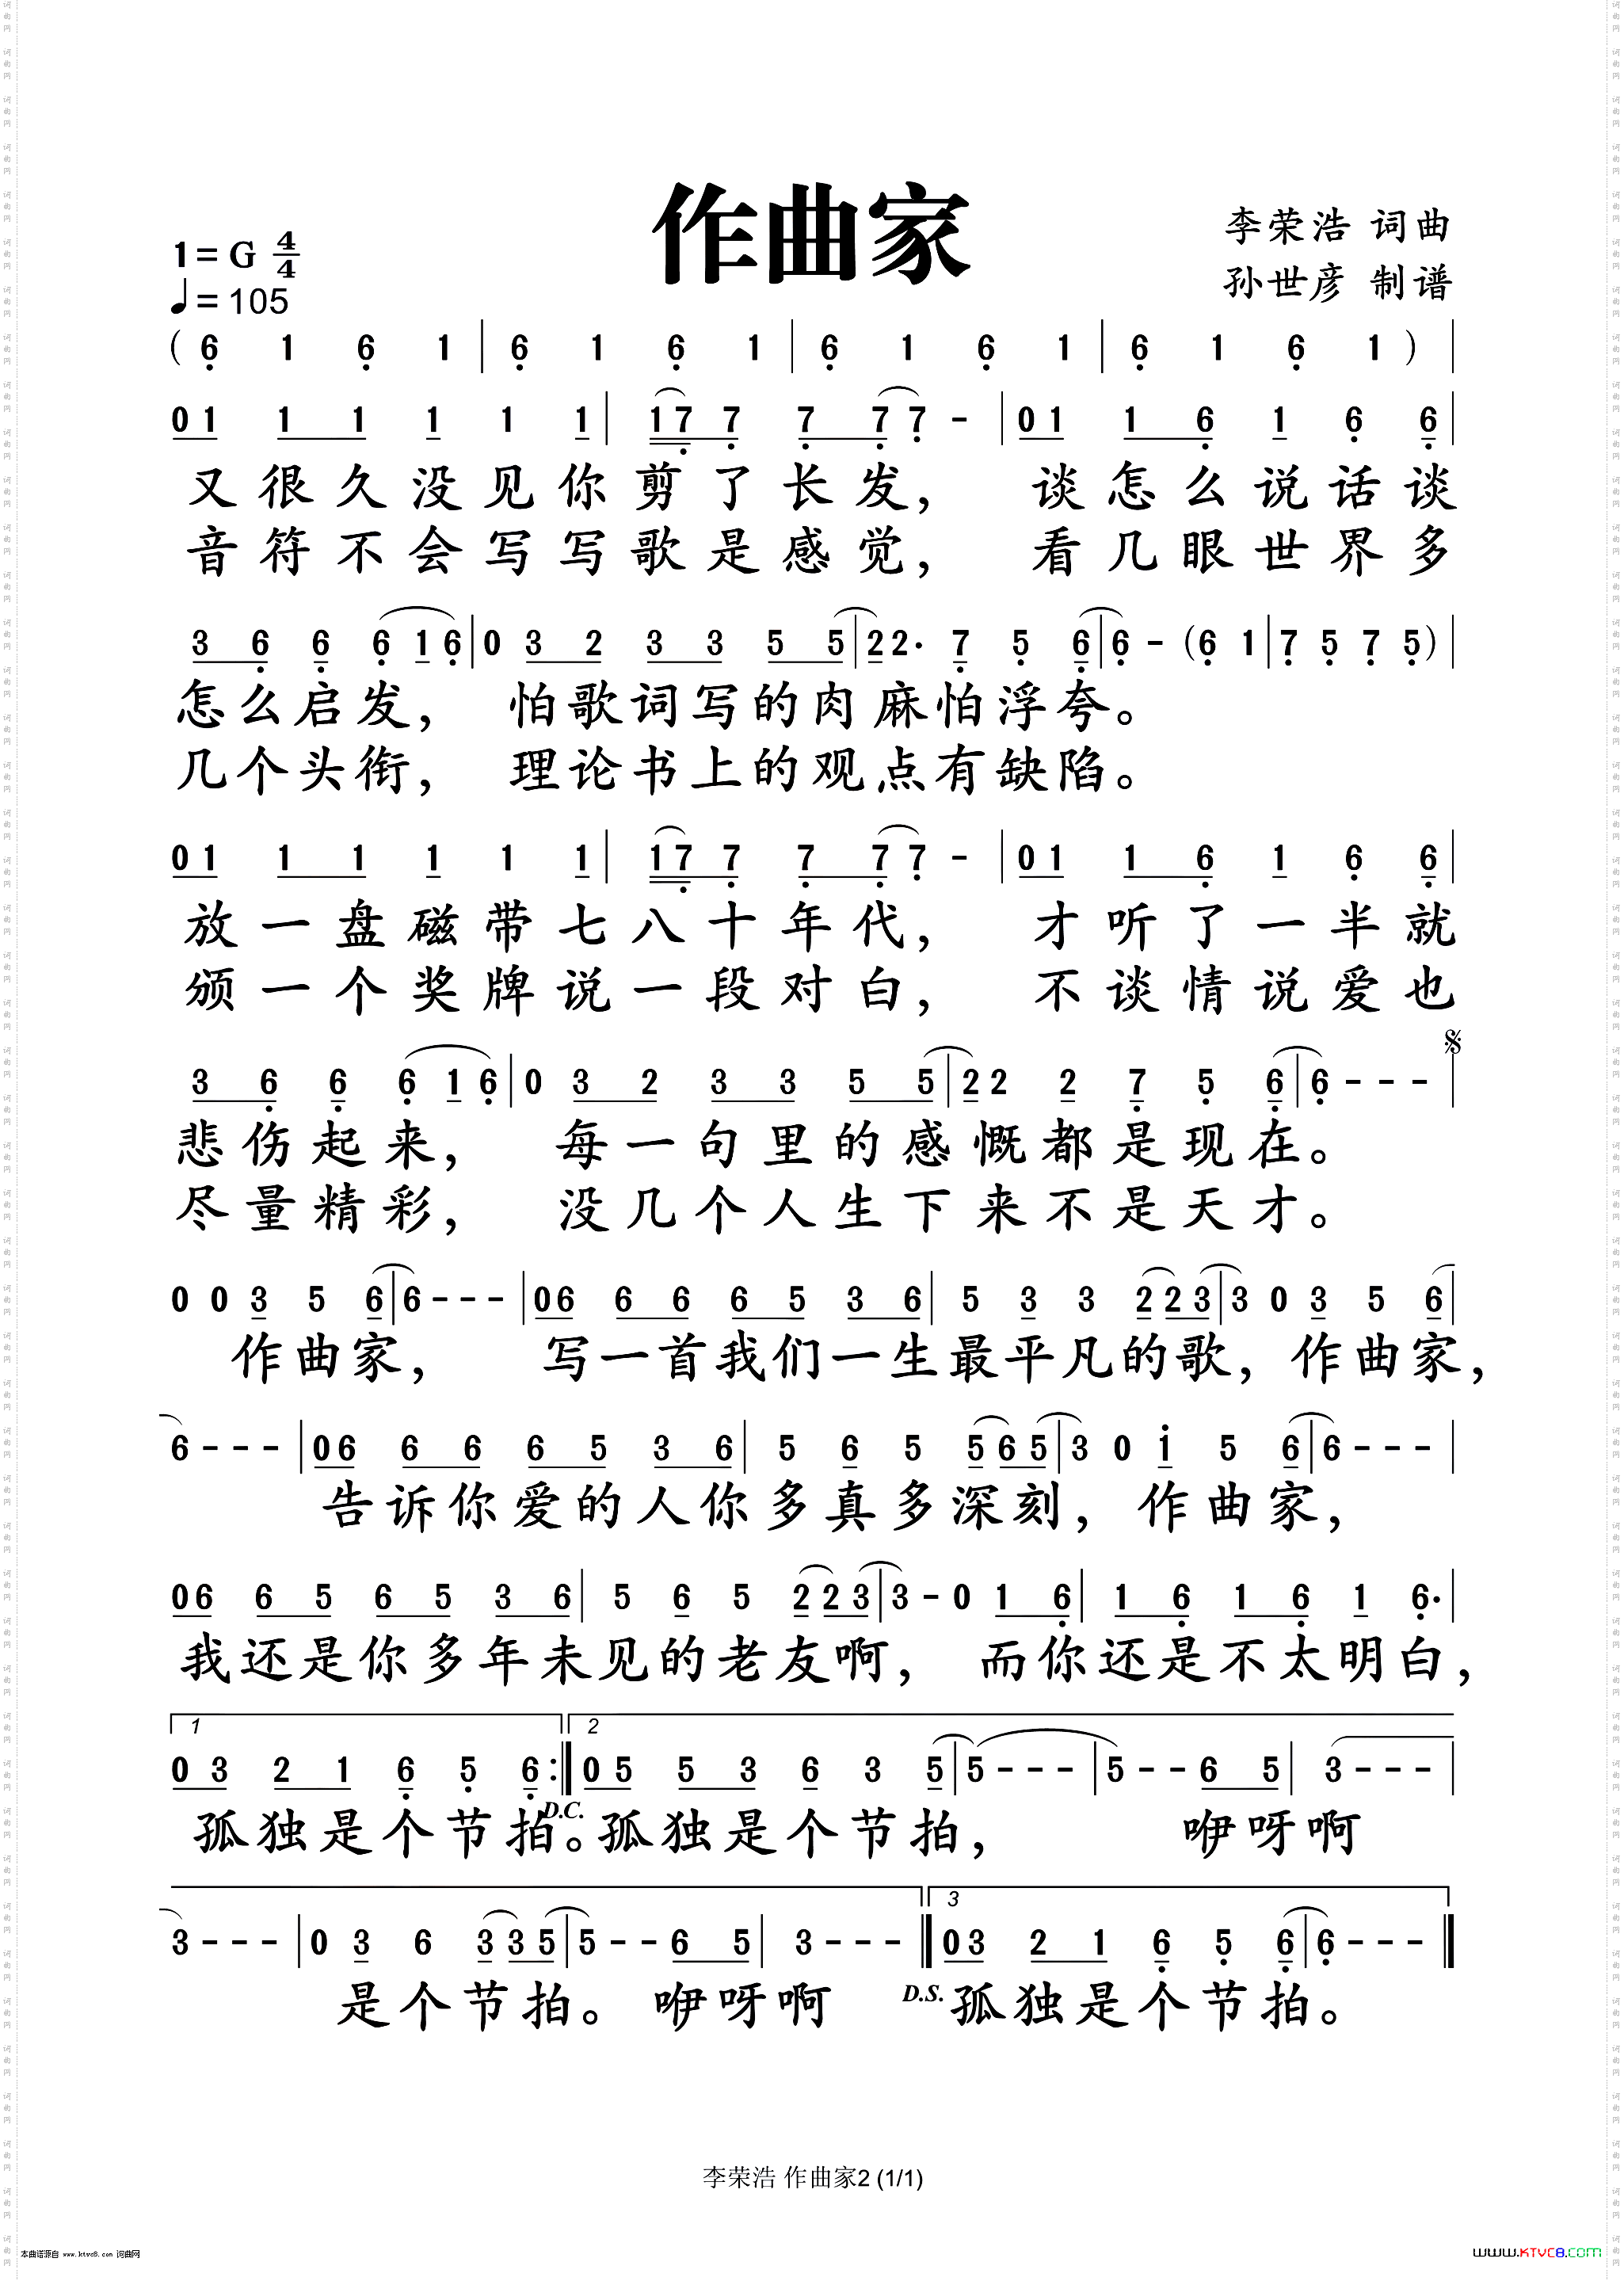 作曲家
李荣浩 词曲
孙世彦 制谱
1= G 4/4
♩= 105
( 6̣ 1 6̣ 1 | 6̣ 1 6̣ 1 | 6̣ 1 6̣ 1 | 6̣ 1 6̣ 1 ) |
0 1 1 1 1 1 1 | 1 7̣ 7̣ 7̣ 7̣ 7̣ - | 0 1 1 6̣ 1 6̣ 6̣ |
又很久没见你剪了长发, 谈怎么说话谈
音符不会写写歌是感觉, 看几眼世界多
3 6̣ 6̣ 6̣ 1 6̣ | 0 3 2 3 3 5 5 | 2 2. 7̣ 5̣ 6̣ | 6̣ - ( 6̣ 1 | 7̣ 5̣ 7̣ 5̣ ) |
怎么启发, 怕歌词写的肉麻怕浮夸。
几个头衔, 理论书上的观点有缺陷。
0 1 1 1 1 1 1 | 1 7̣ 7̣ 7̣ 7̣ 7̣ - | 0 1 1 6̣ 1 6̣ 6̣ |
放一盘磁带七八十年代, 才听了一半就
颁一个奖牌说一段对白, 不谈情说爱也
3 6̣ 6̣ 6̣ 1 6̣ | 0 3 2 3 3 5 5 | 2 2 2 7̣ 5̣ 6̣ | 6̣ - - - | 𝄋
悲伤起来, 每一句里的感慨都是现在。
尽量精彩, 没几个人生下来不是天才。
0 0 3 5 6 | 6 - - - | 0 6 6 6 6 5 3 6 | 5 3 3 2 2 3 | 3 0 3 5 6 |
作曲家, 写一首我们一生最平凡的歌, 作曲家,
6 - - - | 0 6 6 6 6 5 3 6 | 5 6 5 5 6 5 | 3 0 1̇ 5 6 | 6 - - - |
告诉你爱的人你多真多深刻, 作曲家,
0 6 6 5 6 5 3 6 | 5 6 5 2 2 3 | 3 - 0 1 6̣ | 1 6̣ 1 6̣ 1 6̣. |
我还是你多年未见的老友啊, 而你还是不太明白,
1 2
0 3 2 1 6̣ 5̣ 6̣ :‖ 0 5 5 3 6 3 5 | 5 - - - | 5 - - 6 5 | 3 - - - |
D.C.
孤独是个节拍。孤独是个节拍, 咿呀啊
3
3 - - - | 0 3 6 3 3 5 | 5 - - 6 5 | 3 - - - ‖ 0 3 2 1 6̣ 5̣ 6̣ | 6̣ - - - ‖
是个节拍。 咿呀啊 D.S. 孤独是个节拍。
李荣浩 作曲家2 (1/1)
本曲谱源自 www.ktvc8.com 词曲网
WWW.KTVC8.COM